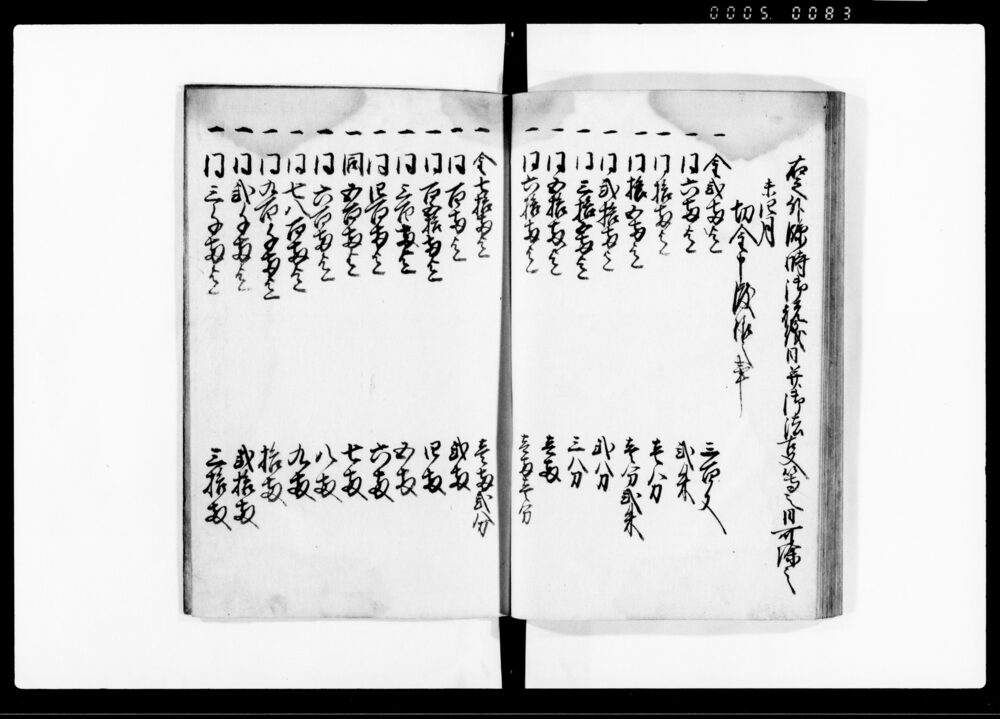 0005. 0083
右之外臨時御祝儀日并御法事等之日可除之
未四月
切金申渡候事
一 金弐両迄 三百文
一 同六両迄 弐朱
一 同拾両迄 壱分
一 同拾五両迄 壱分弐朱
一 同弐拾両迄 弐分
一 同三拾両迄 三分
一 同五拾両迄 壱両
一 同六拾両迄 壱両壱分
一 金七拾両迄 壱両弐分
一 同百両迄 弐両
一 同百五拾両迄
一 同三百両迄 四両
一 同四百両迄 五両
一 同五百両迄 六両
一 同六百両迄 七両
一 同七八百両迄 八両
一 同九百千両迄 九両
一 同弐千両迄 拾両
一 同三千両迄 弐拾両
三拾両